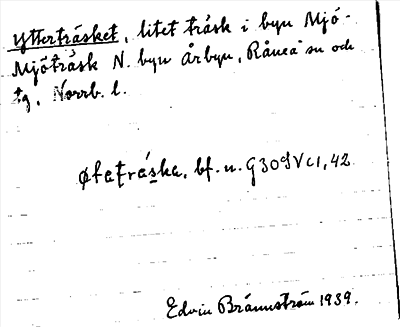 Ytterträsket, litet träsk i byn Mjö-
Mjöträsk N. byn Årbyn, Råneå sn och
tg, Norrb. l.
øfatrás̱ka, bf. u. G309Vc1, 42
Edvin Brännström 1939.